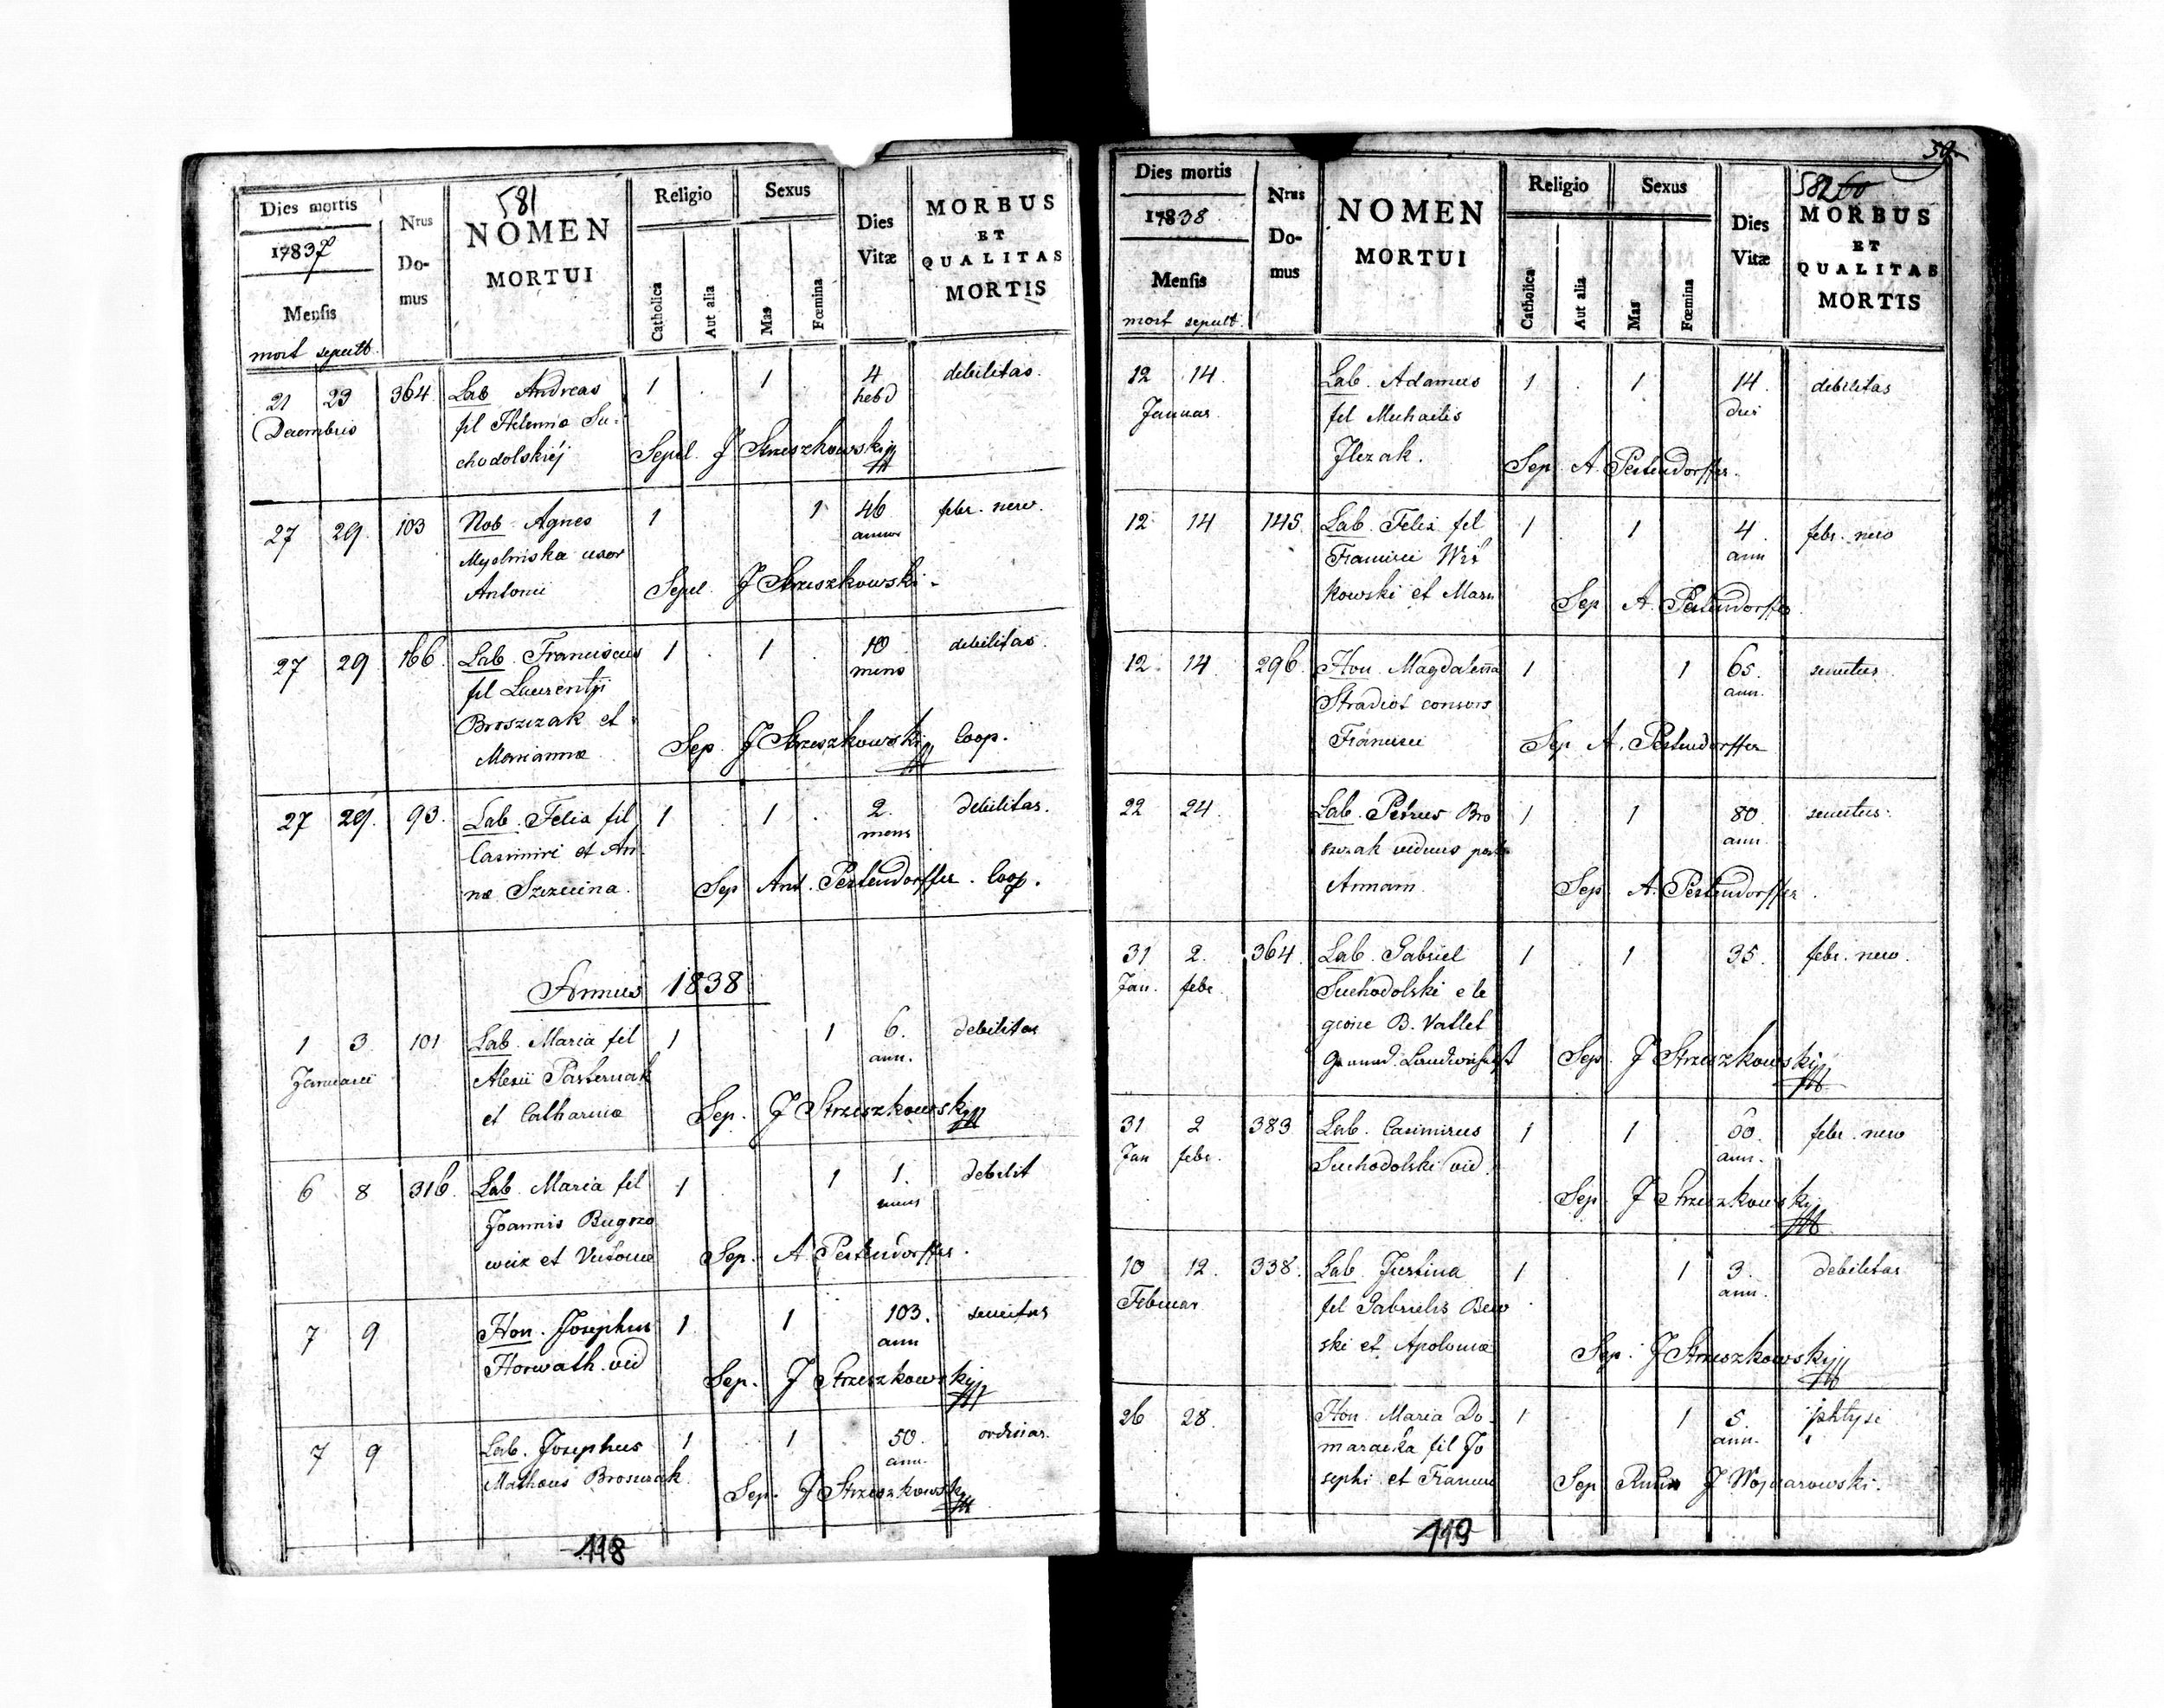 581
Dies mortis
17837
Mensis
mort sepult
Nrus Do-mus
NOMEN
MORTUI
Religio
Catholica
Aut alia
Sexus
Mas
Fœmina
Dies
Vitæ
MORBUS
ET
QUALITAS
MORTIS
21 23 364 Lab Andreas 1 . 1 . 4 debilitas.
Decembris fil Helenna Su- hebd
chodolskiéj Sepel. J Strzeszkowski
27 29 103 Nob. Agnes 1 1 46 febr. nerv.
Myslinska uxor annor
Antonii Sepel. J Strzeszkowski
27 29 166 Lab. Franciscus 1 . 1 . 10 debilitas.
fil Laurentji mens
Broszczak et
Marianna Sep. J Strzeszkowski Coop.
27 29. 93. Lab. Felix fil 1 . 1 . 2. debilitas.
Casimiri et An- mens
næ Szizecina. Sep Ant. Pestendorffer. Coop.
Annus 1838
1 3 101 Lab. Maria fil 1 1 6. debilitas
Januarii Alexii Pasternak ann.
et Catharina Sep. J Strzeszkowski
6 8 316. Lab. Maria fil 1 1 1. debilit
Joannis Bugrzo mens
wicz et Victoriæ Sep. A Pestendorffer.
7 9 Hon. Josephus 1 1 103. senectus
Horwath. vid ann
Sep. J Strzeszkowski
7 9 Lab. Josephus 1 1 50. ordinar.
Matheus Broszczak ann.
Sep. J Strzeszkowski
118
59
582 60
Dies mortis
17838
Mensis
mort sepult
Nrus Do-mus
NOMEN
MORTUI
Religio
Catholica
Aut alia
Sexus
Mas
Fœmina
Dies
Vitæ
MORBUS
ET
QUALITAS
MORTIS
12 14. Lab. Adamus 1 . 1 14. debilitas
Januar. fil Michaelis dies
Jlczak. Sep. A. Pestendorffer.
12. 14 145. Lab. Felix fil 1 1 4. febr. nerv
Francisci Wit ann
kowski et Mariæ Sep A. Pestendorffer.
12. 14 296. Hon. Magdalenna 1 1 65. senectus
Stradiot consors ann.
Francisci Sep A. Pestendorffer
22 24. Lab. Petrus Bro 1 1 80. senectus.
szczak viduus post ann.
Annam. Sep. A. Pestendorffer.
31 2. 364. Lab. Gabriel 1 . 1 35. febr. nerv.
Jan. febr. Suchodolski e le
gione B. Vattlet
Sep. J Strzeszkowski
31 2 383 Lab. Casimirus 1 1 60. febr. nerv
Jan febr. Suchodolski vid. ann.
Sep. J Strzeszkowski
10 12. 338. Lab. Justina 1 1 3. debilitas
Februar. fil Gabrielis Bew ann.
ski et Apoloniæ Sep. J Strzeszkowski
26 28. Hon. Maria Do- 1 1 5. phtysi
maracka fil Jo ann.
sephi et Francisc Sep J Wojnarowski.
119